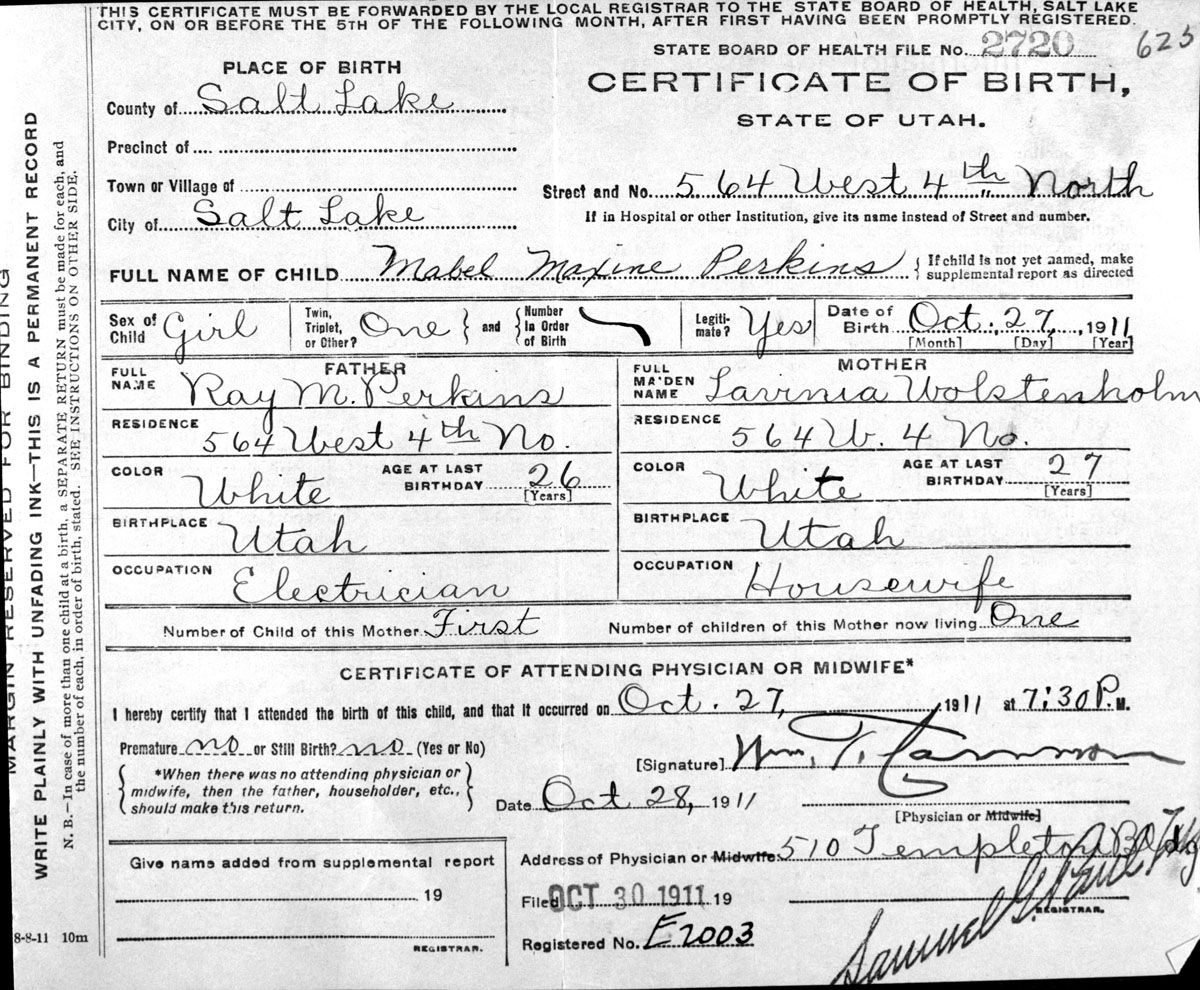 THIS CERTIFICATE MUST BE FORWARDED BY THE LOCAL REGISTRAR TO THE STATE BOARD OF HEALTH, SALT LAKE
CITY, ON OR BEFORE THE 5TH OF THE FOLLOWING MONTH, AFTER FIRST HAVING BEEN PROMPTLY REGISTERED.
STATE BOARD OF HEALTH FILE No. 2720 625
PLACE OF BIRTH
CERTIFICATE OF BIRTH,
STATE OF UTAH.
County of Salt Lake
Precinct of
Town or Village of
Street and No. 564 West 4th North
City of Salt Lake
If in Hospital or other Institution, give its name instead of Street and number.
FULL NAME OF CHILD Mabel Maxine Perkins
If child is not yet named, make
supplemental report as directed
Sex of Child Girl
Twin, Triplet, or Other? One
and Number In Order of Birth
Legiti-mate? Yes
Date of Birth Oct. 27, 1911
[Month] [Day] [Year]
FATHER
FULL NAME Ray M. Perkins
RESIDENCE 564 West 4th No.
COLOR White
AGE AT LAST BIRTHDAY 26 [Years]
BIRTHPLACE Utah
OCCUPATION Electrician
MOTHER
FULL MAIDEN NAME Lavinia Wolstenholm
RESIDENCE 564 W. 4 No.
COLOR White
AGE AT LAST BIRTHDAY 27 [Years]
BIRTHPLACE Utah
OCCUPATION Housewife
Number of Child of this Mother First
Number of children of this Mother now living One
CERTIFICATE OF ATTENDING PHYSICIAN OR MIDWIFE*
I hereby certify that I attended the birth of this child, and that it occurred on Oct. 27, 1911 at 7:30 P. M.
Premature no or Still Birth? no (Yes or No)
[Signature] Wm. T. Cannon
*When there was no attending physician or
midwife, then the father, householder, etc.,
should make this return.
Date Oct 28, 1911
[Physician or Midwife]
Address of Physician or Midwife 510 Templeton Bldg
Give name added from supplemental report
19
REGISTRAR.
Filed OCT 30 1911 19
Samuel G. Paul
REGISTRAR.
Registered No. E2003
8-8-11 10m
MARGIN RESERVED FOR BINDING
WRITE PLAINLY WITH UNFADING INK—THIS IS A PERMANENT RECORD
N. B.—In case of more than one child at a birth, a SEPARATE RETURN must be made for each, and
the number of each, in order of birth, stated. SEE INSTRUCTIONS ON OTHER SIDE.